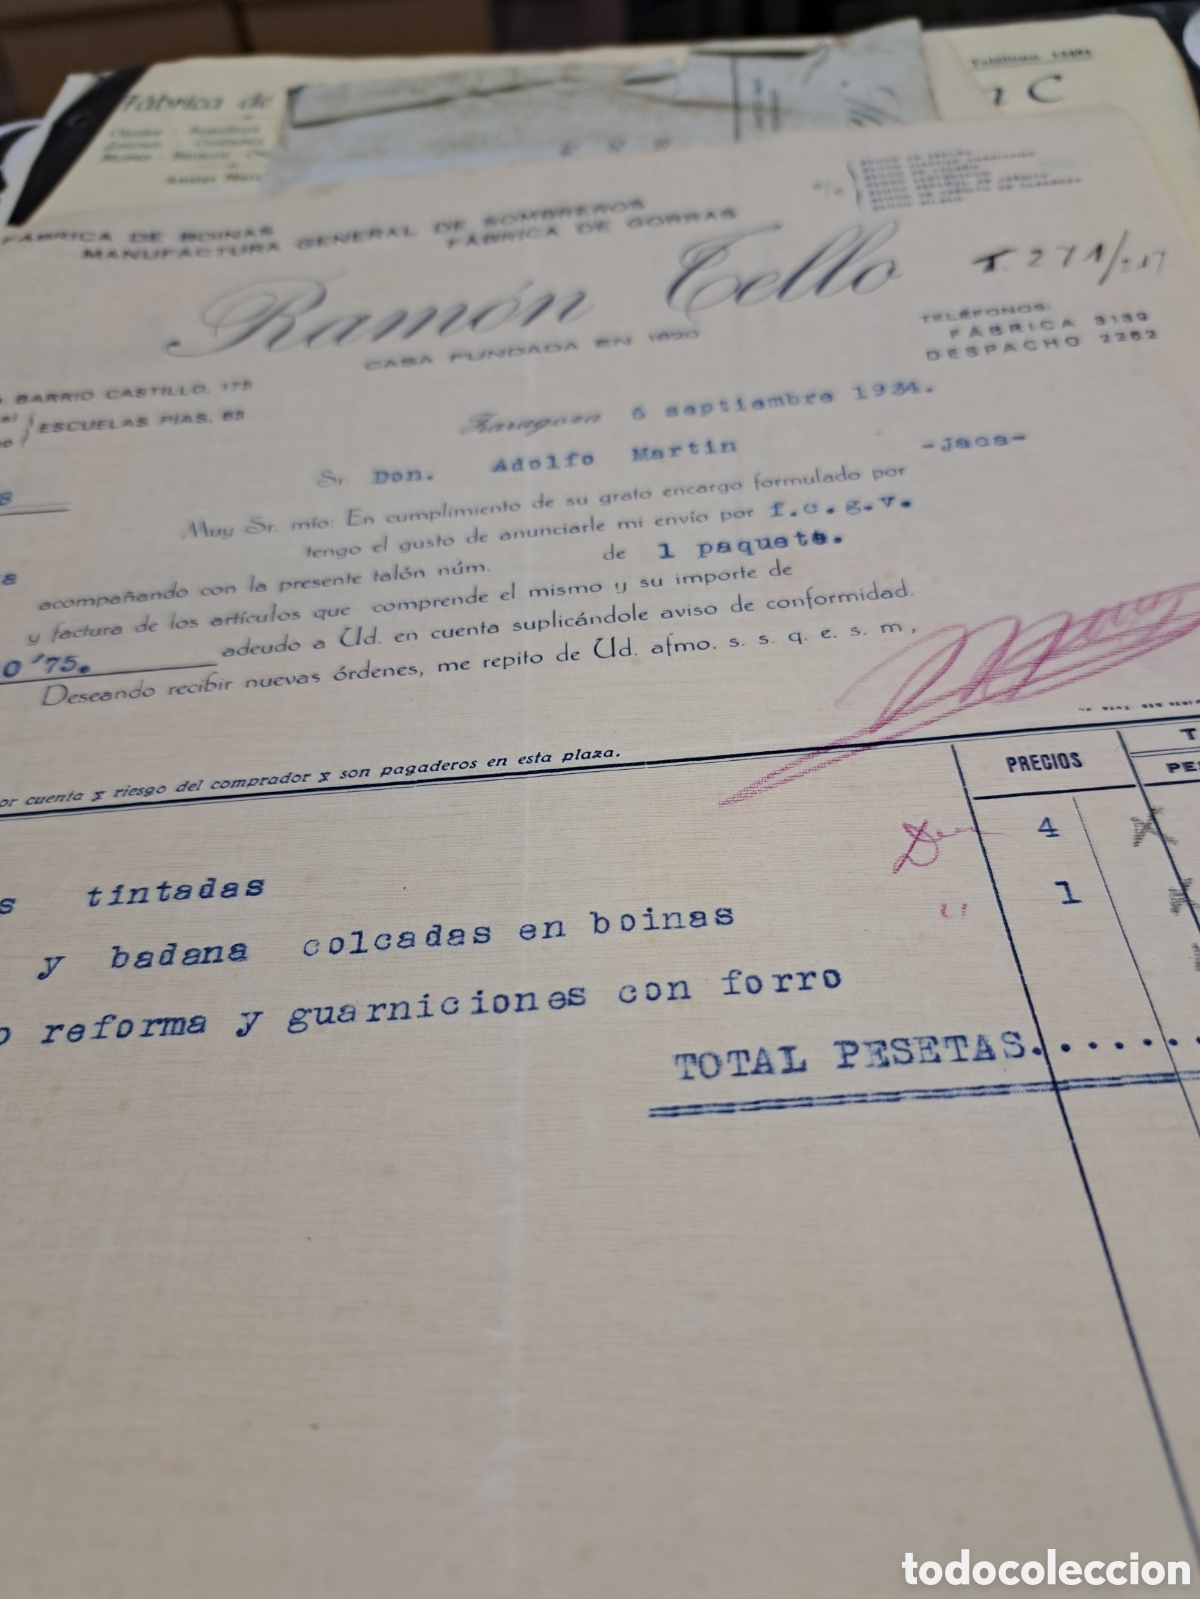 Teléfono
Fábrica de
n C
FÁBRICA DE BOINAS
MANUFACTURA GENERAL DE SOMBREROS
FÁBRICA DE GORRAS
Ramón Tello
CASA FUNDADA EN 1890
T. 271/217
TELÉFONOS:
FÁBRICA 3139
DESPACHO 2262
BARRIO CASTILLO, 175
ESCUELAS PIAS, 65
Zaragoza 6 septiembre 1934.
Sr. Don. Adolfo Martin
-Jaca-
Muy Sr. mío: En cumplimiento de su grato encargo formulado por
tengo el gusto de anunciarle mi envío por f.c.g.v.
acompañando con la presente talón núm. de 1 paquete.
y factura de los artículos que comprende el mismo y su importe de
0'75. adeudo a Ud. en cuenta suplicándole aviso de conformidad.
Deseando recibir nuevas órdenes, me repito de Ud. afmo. s. s. q. e. s. m,
or cuenta y riesgo del comprador y son pagaderos en esta plaza.
PRECIOS
T
PES
s tintadas 4
y badana colcadas en boinas " 1
o reforma y guarniciones con forro
TOTAL PESETAS.......
todocoleccion